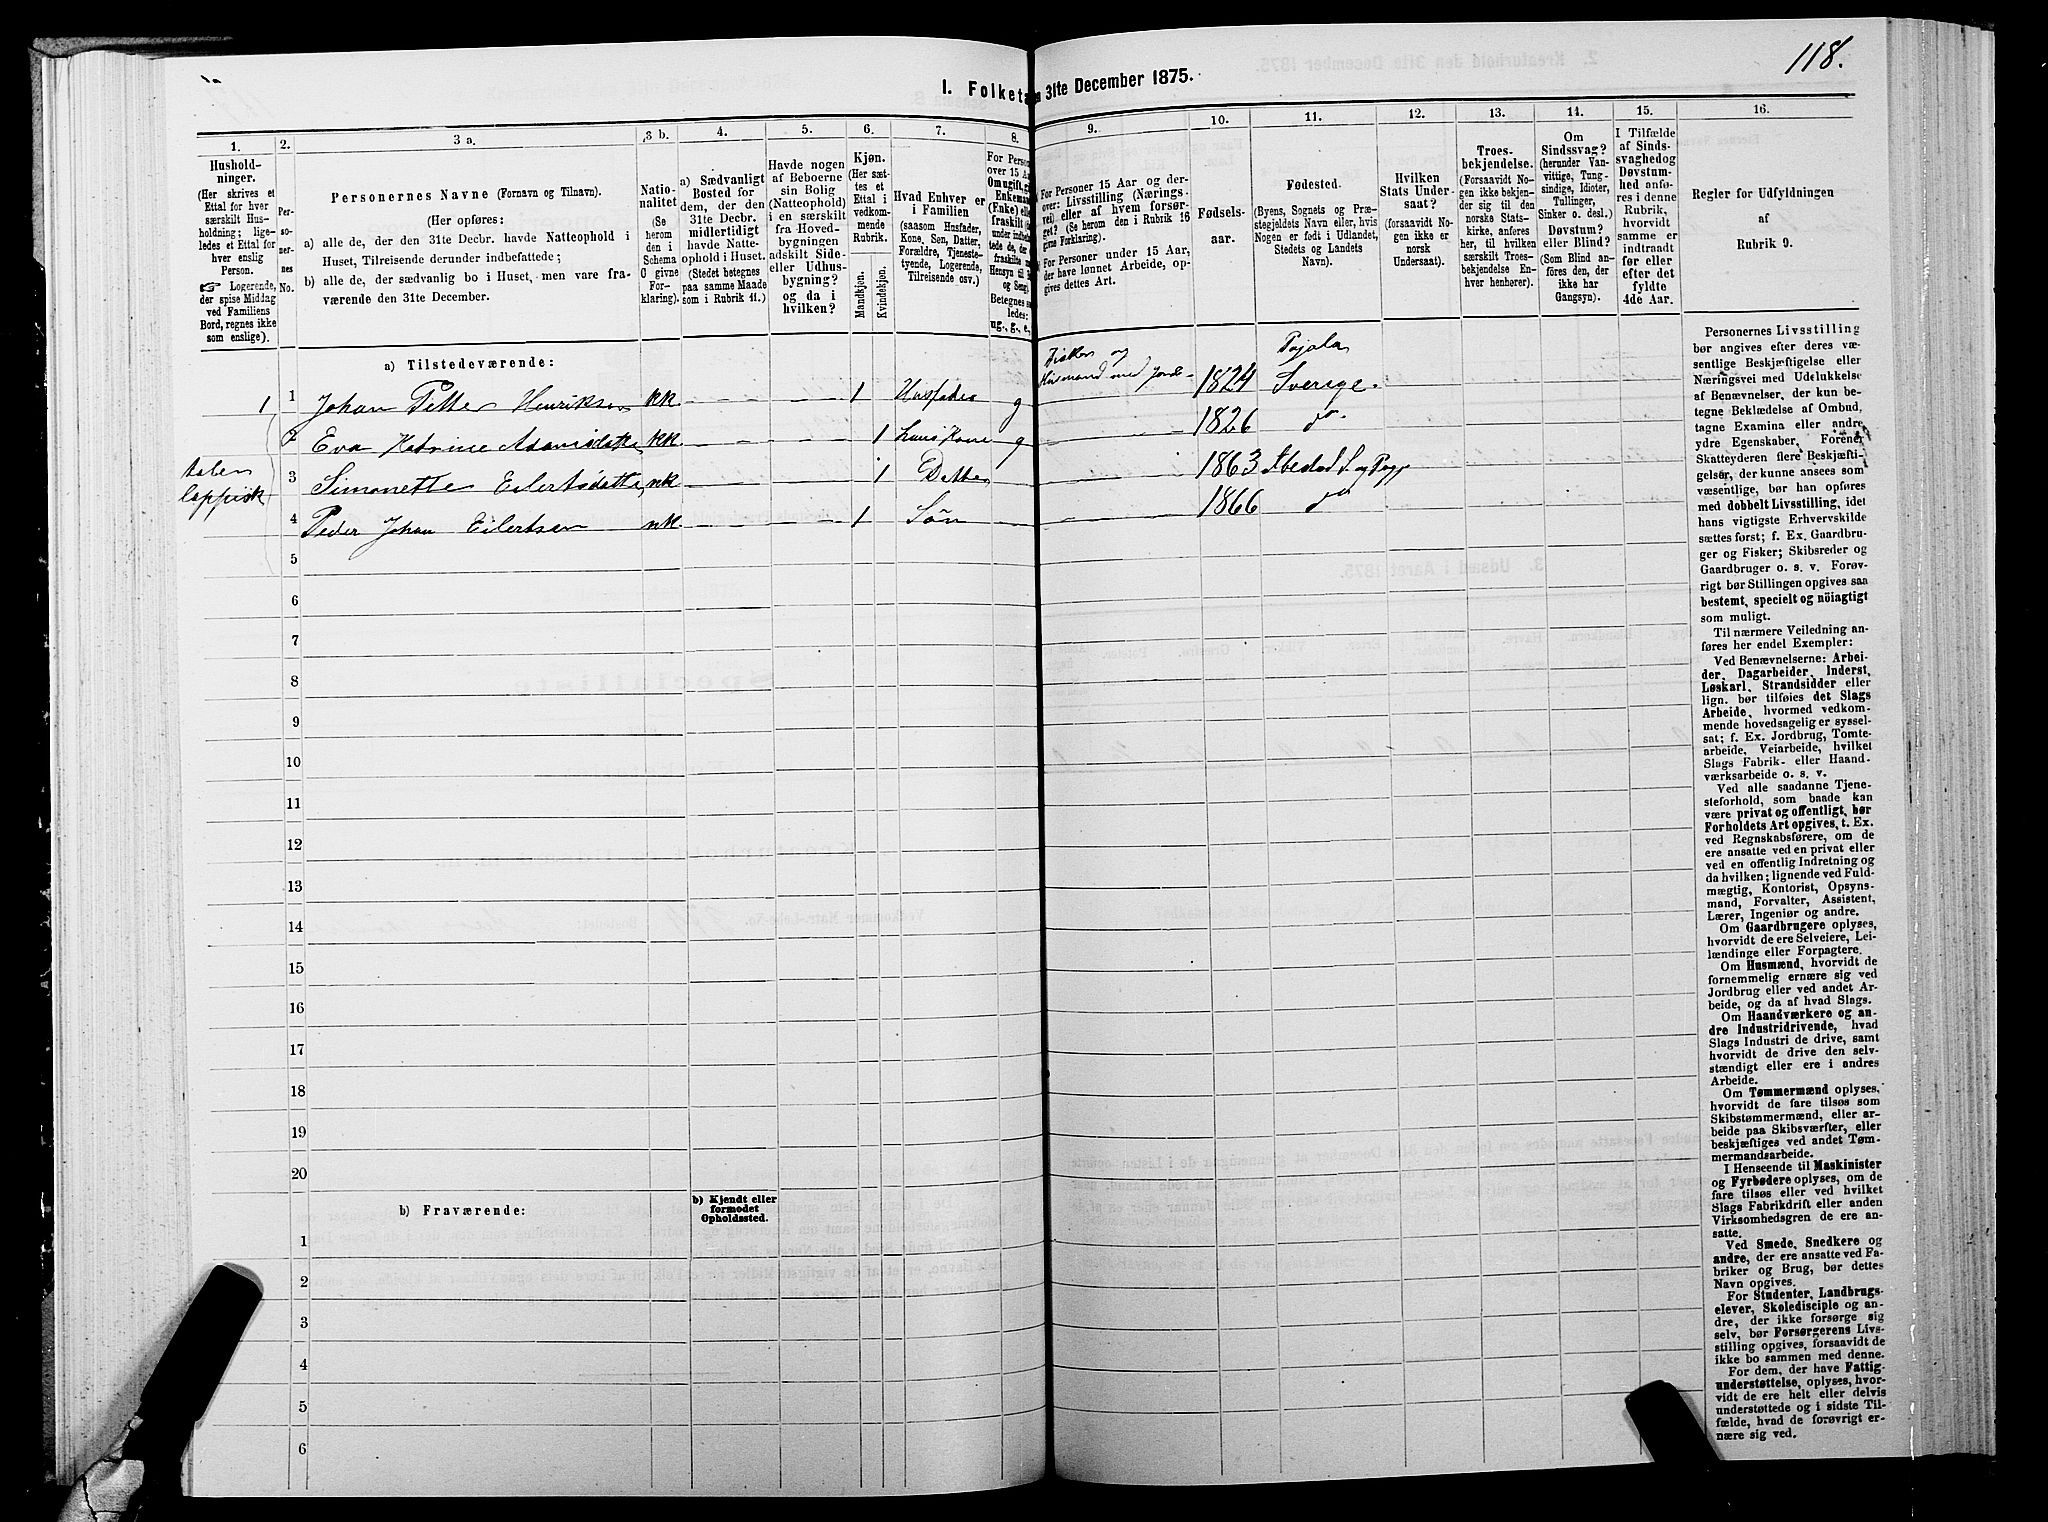 118.
I. Folketa
n 31te December 1875.
1.
Hushold-
ninger.
(Her skrives et
Ettal for hver
særskilt Hus-
holdning; lige-
ledes et Ettal for
hver enslig
Person.
☞ Logerende,
der spise Middag
ved Familiens
Bord, regnes ikke
som enslige).
2.
Per-
so-
ner-
nes
No.
3 a.
Personernes Navne (Fornavn og Tilnavn).
(Her opføres:
a) alle de, der den 31te Decbr. havde Natteophold i
Huset, Tilreisende derunder indbefattede;
b) alle de, der sædvanlig bo i Huset, men vare fra-
værende den 31te December.
3 b.
Natio-
nalitet
(Se
herom
den i
Schema
O givne
For-
klaring).
4.
a) Sædvanligt
Bosted for
dem, der den
31te Decbr.
midlertidigt
havde Natte-
ophold i Huset.
(Stedet betegnes
paa samme Maade
som i Rubrik 11.)
5.
Havde nogen
af Beboerne
sin Bolig
(Natteophold)
i en særskilt
fra Hoved-
bygningen
adskilt Side-
eller Udhus-
bygning?
og da i
hvilken?
6.
Kjøn.
(Her sæt-
tes et
Ettal i
vedkom-
mende
Rubrik.
Mandkjøn.
Kvindekjøn.
7.
Hvad Enhver er
i Familien
(saasom Husfader,
Kone, Søn, Datter,
Forældre, Tjeneste-
tyende, Logerende,
Tilreisende osv.)
8.
For Person
over 15 Aar
Om ugift, gi
Enkeman
(Enke) ell
fraskilt
Betegnes sa
ledes:
ug., g., e.,
9.
For Personer 15 Aar og der-
over: Livsstilling (Nærings-
vei) eller af hvem forsør-
get? (Se herom den i Rubrik 16
givne Forklaring).
For Personer under 15 Aar,
der have lønnet Arbeide, op-
gives dettes Art.
10.
Fødsels-
aar.
11.
Fødested.
(Byens, Sognets og Præ-
stegjeldets Navn eller, hvis
Nogen er født i Udlandet,
Stedets og Landets
Navn).
12.
Hvilken
Stats Under-
saat?
(forsaavidt No-
gen ikke er
norsk
Undersaat).
13.
Troes-
bekjendelse.
(Forsaavidt No-
gen ikke bekjen-
der sig til den
norske Stats-
kirke, anføres
her, til hvilken
særskilt Troes-
bekjendelse En-
hver henhører).
14.
Om
Sindssvag?
(herunder Van-
vittige, Tung-
sindige, Idioter,
Tullinger,
Sinker o. desl.)
Døvstum?
eller Blind?
(Som Blind an-
føres den, der
ikke har
Gangsyn).
15.
I Tilfælde
af Sinds-
svaghed og
Døvstum-
hed anfø-
res i denne
Rubrik,
hvorvidt
samme er
indtraadt
før eller
efter det
fyldte
4de Aar.
16.
Regler for Udfyldningen
af
Rubrik 9.
a) Tilstedeværende:
1 1 Johan Petter Henriksen kk 1 Husfader g Fisker og Husmand med Jord 1824 Pajala Sverige.
2 Eva Katrine Adamsdatter kk 1 hans Kone g 1826 do
talen
lappisk
3 Simonette Eilertsdatter nk 1 Datter 1863 Ibestad S. og Pgj
4 Peder Johan Eilertsen nk 1 Søn 1866 do
5
6
7
8
9
10
11
12
13
14
15
16
17
18
19
20
b) Fraværende:
b) Kjendt eller
formodet
Opholdssted.
1
2
3
4
5
6
Personernes Livsstilling
bør angives efter deres væ-
sentlige Beskjæftigelse eller
Næringsvei med Udelukkelse
af Benævnelser, der kun be-
tegne Beklædelse af Ombud,
tagne Examina eller andre
ydre Egenskaber. Forener
Skatteyderen flere Beskjæfti-
gelser, der kunne ansees som
væsentlige, bør han opføres
med dobbelt Livsstilling, idet
hans vigtigste Erhvervskilde
sættes først; f. Ex. Gaardbru-
ger og Fisker; Skibsreder og
Gaardbruger o. s. v. Forøv-
rigt bør Stillingen opgives saa
bestemt, specielt og nöiagtigt
som muligt.
Til nærmere Veiledning an-
føres her endel Exempler:
Ved Benævnelserne: Arbei-
der, Dagarbeider, Inderst,
Løskarl, Strandsidder eller
lign. bør tilføies det Slags
Arbeide, hvormed vedkom-
mende hovedsagelig er syssel-
sat; f. Ex. Jordbrug, Tomte-
arbeide, Veiarbeide, hvilket
Slags Fabrik- eller Haand-
værksarbeide o. s. v.
Ved alle saadanne Tjene-
steforhold, som baade kan
være privat og offentligt, bør
Forholdets Art opgives, t. Ex.
ved Regnskabsførere, om de
ere ansatte ved en privat eller
ved en offentlig Indretning og
da hvilken; lignende ved Fuld-
mægtig, Kontorist, Opsyns-
mand, Forvalter, Assistent,
Lærer, Ingeniør og andre.
Om Gaardbrugere oplyses,
hvorvidt de ere Selveiere, Lei-
lændinge eller Forpagtere.
Om Husmænd, hvorvidt de
fornemmelig ernære sig ved
Jordbrug eller ved andet Ar-
beide, og da af hvad Slags.
Om Haandværkere og an-
dre Industridrivende, hvad
Slags Industri de drive, samt
hvorvidt de drive den selv-
stændigt eller ere i andres
Arbeide.
Om Tømmermænd oplyses,
hvorvidt de fare tilsøs som
Skibstømmermænd, eller ar-
beide paa Skibsværfter, eller
beskjæftiges ved andet Tøm-
mermandsarbeide.
I Henseende til Maskinister
og Fyrbødere oplyses, om de
fare tilsøs eller ved hvilket
Slags Fabrikdrift eller anden
Virksomhedsgren de ere an-
satte.
Ved Smede, Snedkere og
andre, der ere ansatte ved Fa-
briker og Brug, bør dettes
Navn opgives.
For Studenter, Landbrugs-
elever, Skoledisciple og an-
dre, der ikke forsørge sig
selv, bør Forsørgerens Livs-
stilling opgives, forsaavidt de
ikke bo sammen med denne.
For dem, der have Fattig-
understøttelse, oplyses, hvor-
vidt de ere helt eller delvis
understøttede og i sidste Til-
fælde, hvad de forøvrigt er-
nære sig ved.